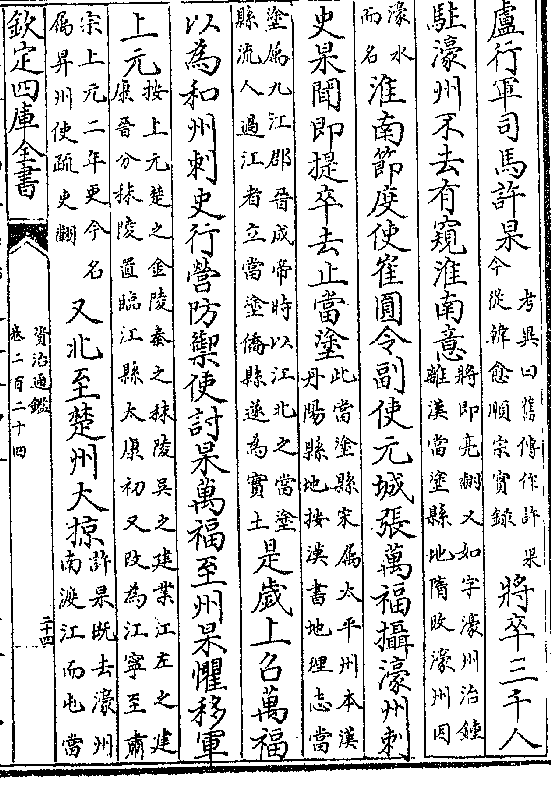 盧行軍司馬許杲考異曰舊傳作許果今從韓愈順宗實録將卒三千人
駐濠州不去有窺淮南意將即亮翻又如字濠州治鍾離漢當塗縣地隋改濠州因
濠水而名淮南節度使崔圓令副使元城張萬福攝濠州刺
史杲聞即提卒去止當塗此當塗縣宋屬太平州本漢丹陽縣地按漢書地理志當
塗屬九江郡晉成帝時以江北之當塗縣流人過江者立當塗僑縣遂為實土是歲上召萬福
以為和州刺史行營防禦使討杲萬福至州杲懼移軍
上元按上元楚之金陵秦之秣陵吳之建業江左之建康晉分秣陵置臨江縣太康初又改為江寧至肅
宗上元二年更今名屬昇州使疏史翻又北至楚州大掠許杲既去濠州南渡江而屯當
欽定四庫全書
資治通鑑
卷二百二十四
二十四